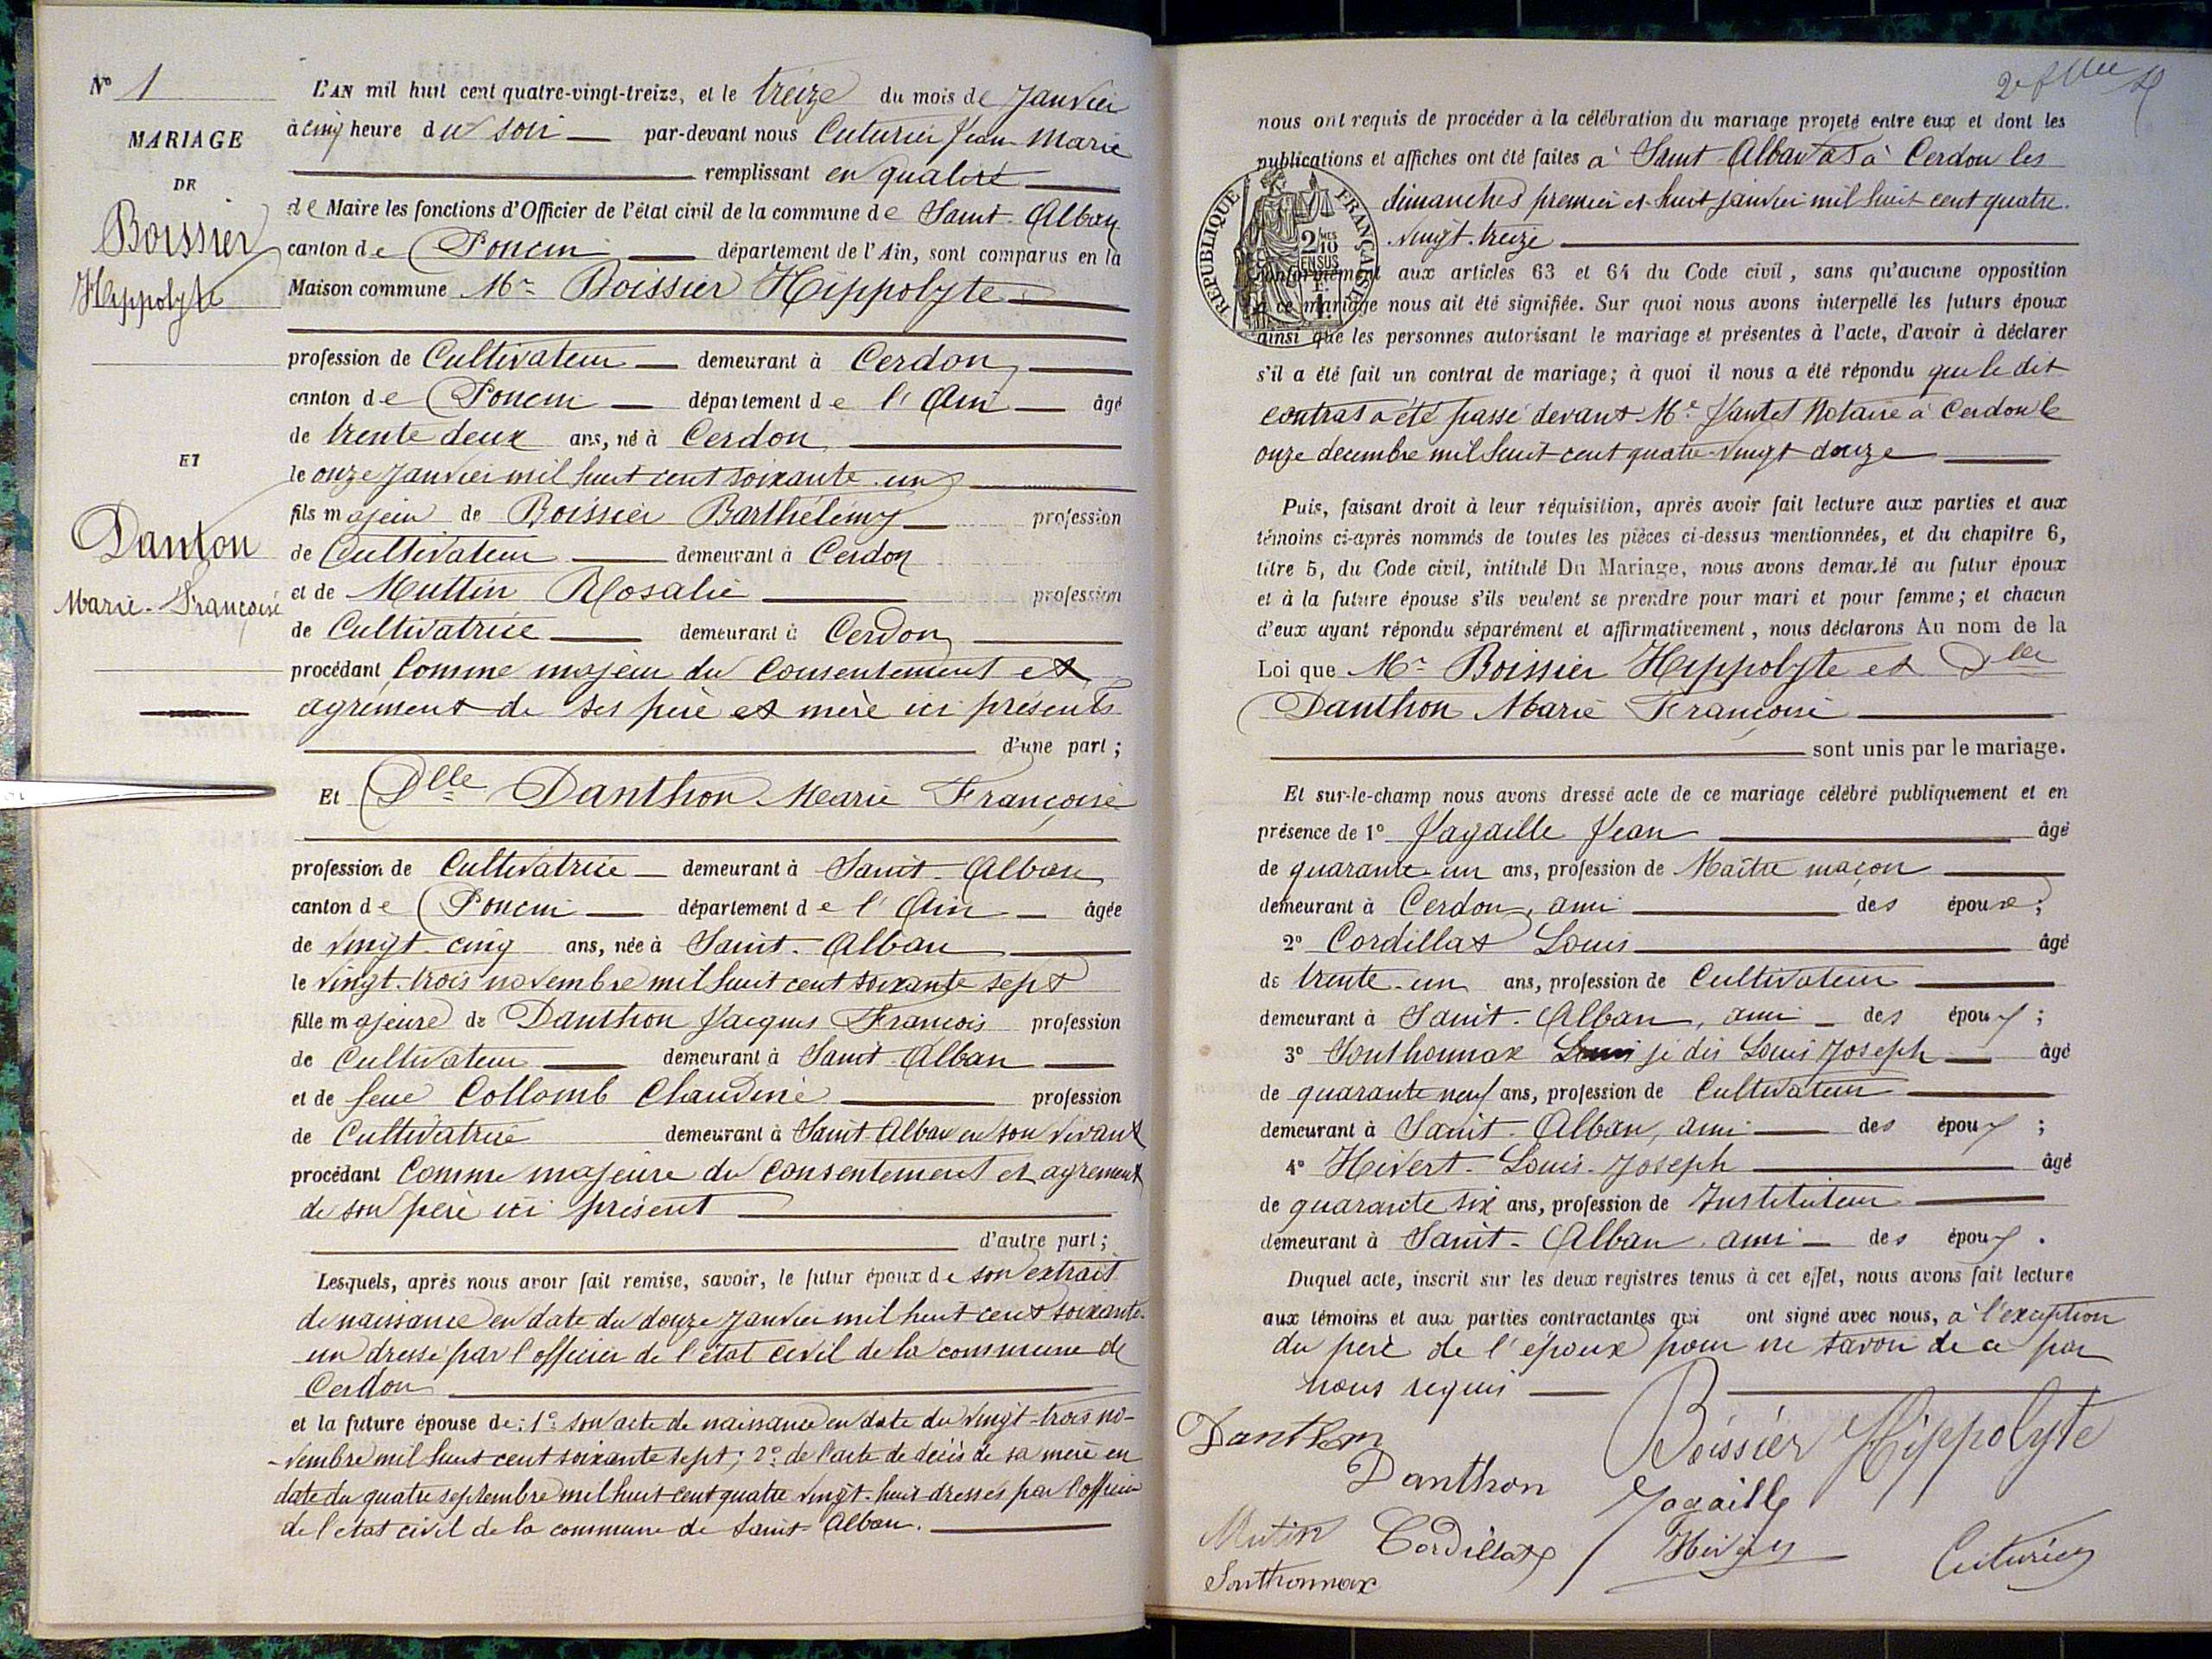 N° 1
MARIAGE
DE
Boissier
Hippolyte
ET
Danton
Marie-Françoise
L'AN mil huit cent quatre-vingt-treize, et le treize du mois de Janvier
à cinq heure du soir par-devant nous Cuturier Jean Marie
remplissant en qualité
de Maire les fonctions d'Officier de l'état civil de la commune de Saint-Alban
canton de Poncin département de l'Ain, sont comparus en la
Maison commune Mr Boissier Hippolyte
profession de Cultivateur demeurant à Cerdon,
canton de Poncin département de l'Ain âgé
de trente deux ans, né à Cerdon,
le onze Janvier mil huit cent soixante-un
fils majeur de Boissier Barthélémy profession
de Cultivateur demeurant à Cerdon
et de Muttin Rosalie profession
de Cultivatrice demeurant à Cerdon,
procédant Comme majeur du consentement et
agrément de ses père et mère ici présents.
d'une part;
Et Dlle Danthon Marie Françoise
profession de Cultivatrice demeurant à Saint-Alban
canton de Poncin département de l'Ain âgée
de vingt cinq ans, née à Saint-Alban
le vingt-trois novembre mil huit cent soixante sept
fille majeure de Danthon Jacques François profession
de Cultivateur demeurant à Saint-Alban
et de feue Collomb Claudine profession
de Cultivatrice demeurant à Saint-Alban en son vivant
procédant Comme majeure du consentement et agrément
de son père ici présent
d'autre part;
Lesquels, après nous avoir fait remise, savoir, le futur époux de son extrait
de naissance en date du douze Janvier mil huit cent soixante-
un dressé par l'officier de l'état civil de la commune de
Cerdon
et la future épouse de: 1° son acte de naissance en date du vingt-trois no-
-vembre mil huit cent soixante sept; 2° de l'acte de décès de sa mère en
date du quatre septembre mil huit cent quatre vingt-huit dressés par l'officier
de l'état civil de la commune de Saint-Alban.
nous ont requis de procéder à la célébration du mariage projeté entre eux et dont les
publications et affiches ont été faites à Saint-Alban et à Cerdon les
dimanches premier et huit janvier mil huit cent quatre-
vingt-treize
RÉPUBLIQUE FRANÇAISE
2 MES
10
EN SUS
conformément aux articles 63 et 64 du Code civil, sans qu'aucune opposition
à ce mariage nous ait été signifiée. Sur quoi nous avons interpellé les futurs époux
ainsi que les personnes autorisant le mariage et présentes à l'acte, d'avoir à déclarer
s'il a été fait un contrat de mariage; à quoi il nous a été répondu que le dit
contrat a été passé devant Me Jantet Notaire à Cerdon le
onze décembre mil huit cent quatre-vingt douze
Puis, faisant droit à leur réquisition, après avoir fait lecture aux parties et aux
témoins ci-après nommés de toutes les pièces ci-dessus mentionnées, et du chapitre 6,
titre 5, du Code civil, intitulé Du Mariage, nous avons demandé au futur époux
et à la future épouse s'ils veulent se prendre pour mari et pour femme; et chacun
d'eux ayant répondu séparément et affirmativement, nous déclarons Au nom de la
Loi que Mr Boissier Hippolyte et Dlle
Danthon Marie Françoise
sont unis par le mariage.
Et sur-le-champ nous avons dressé acte de ce mariage célébré publiquement et en
présence de 1° Jagaille Jean âgé
de quarante-un ans, profession de Maître maçon
demeurant à Cerdon, ami des époux;
2° Cordillat Louis âgé
de trente-un ans, profession de Cultivateur
demeurant à Saint-Alban, ami des époux;
3° Southonnax Louis je dis Louis Joseph âgé
de quarante neuf ans, profession de Cultivateur
demeurant à Saint-Alban, ami des époux;
4° Hivert-Louis-Joseph âgé
de quarante six ans, profession de Instituteur
demeurant à Saint-Alban, ami des époux.
Duquel acte, inscrit sur les deux registres tenus à cet effet, nous avons fait lecture
aux témoins et aux parties contractantes qui ont signé avec nous, à l'exception
du père de l'époux pour ne savoir de ce par
nous requis
Danthon
Boissier Hippolyte
Danthon
Jagaille
Mutin
Cordillat
Hivert
Cuturier
Southonnax